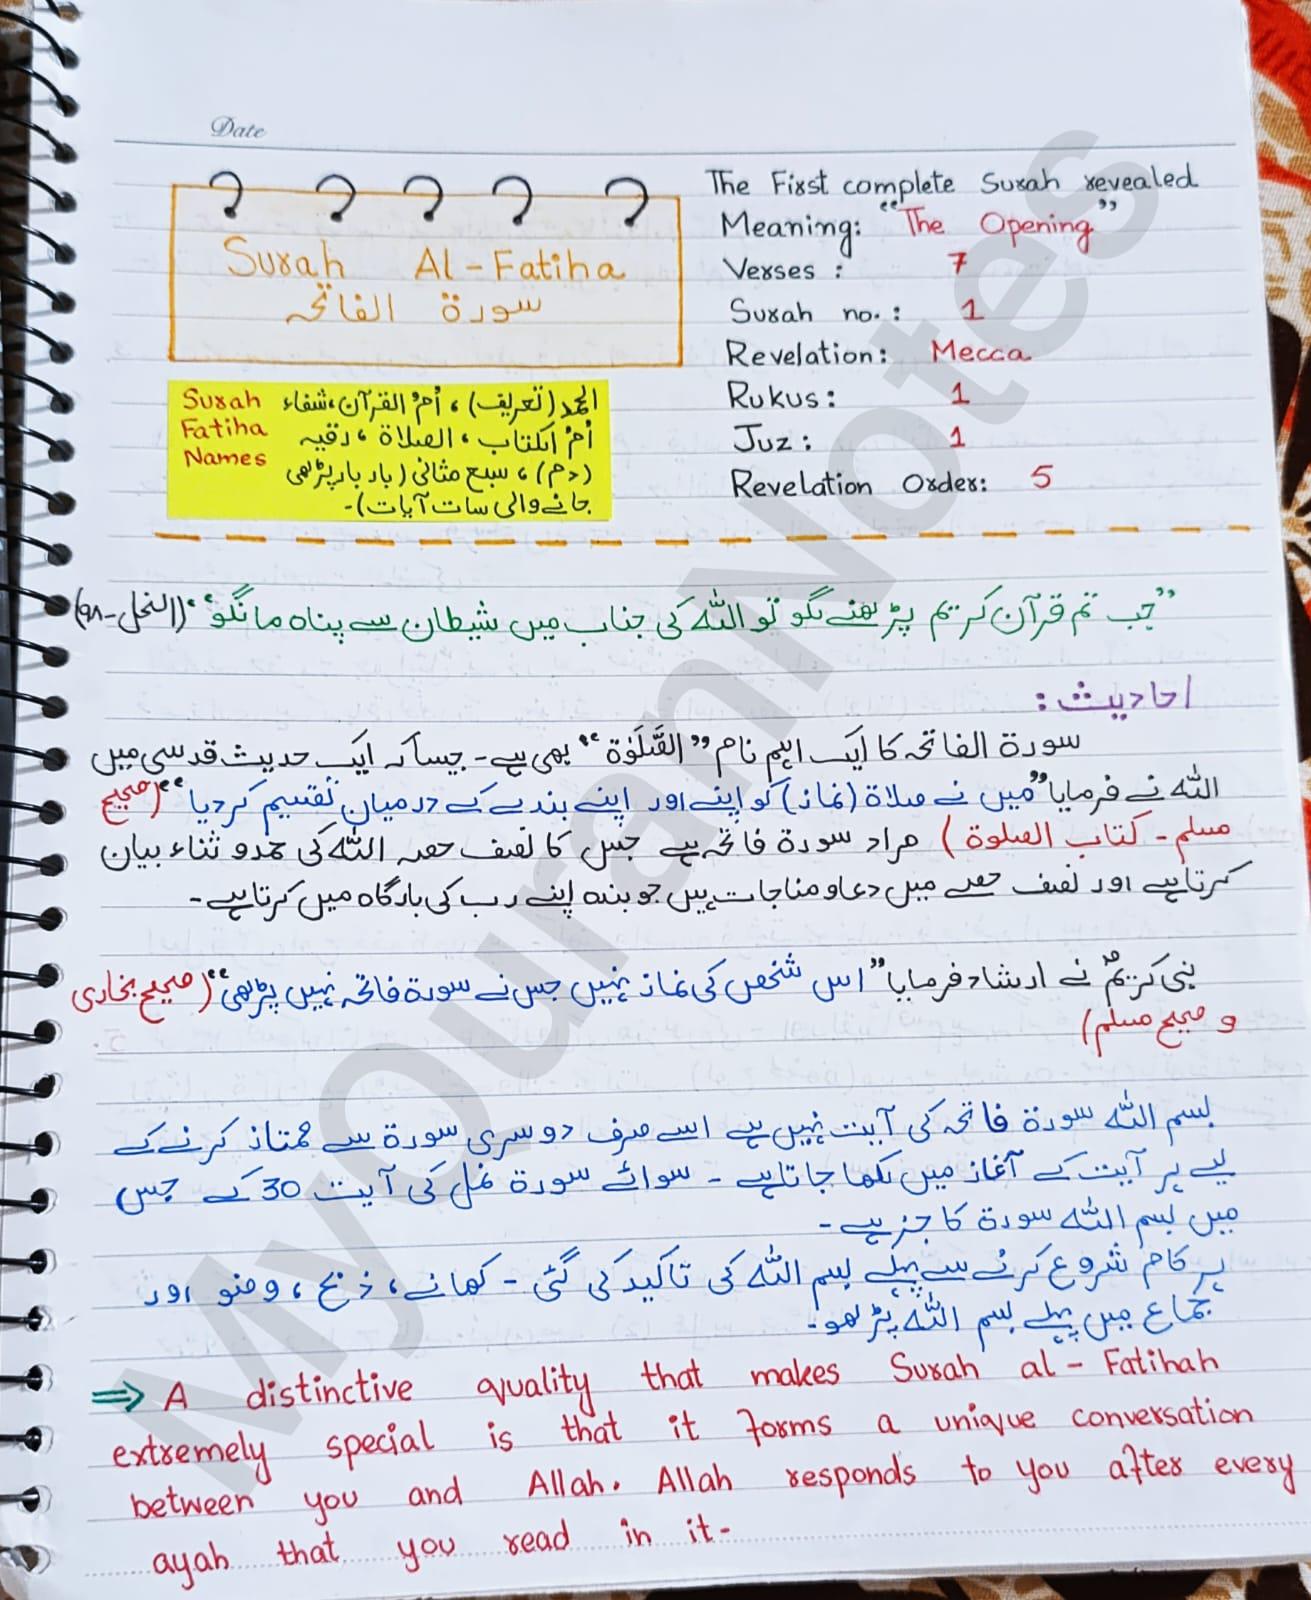 Date
Surah Al-Fatiha
سورة الفاتحہ
The First complete Surah revealed
Meaning: "The Opening"
Verses : 7
Surah no. : 1
Revelation: Mecca
Rukus : 1
Juz : 1
Revelation Order: 5
Surah Fatiha Names
الحمد (تعریف)، اُم القرآن، شفاء
اُم الکتاب، الصلاة، رقیہ
(دم)، سبع مثانی (بار بار پڑھی
جانے والی سات آیات)۔
"جب تم قرآن کریم پڑھنے لگو تو اللہ کی جناب میں شیطان سے پناہ مانگو" (النحل - ۹۸)
احادیث :
سورة الفاتحہ کا ایک اہم نام "الصَّلَوٰة" بھی ہے۔ جیسا کہ ایک حدیث قدسی میں
اللہ نے فرمایا "میں نے صلاة (نماز) کو اپنے اور اپنے بندے کے درمیان تقسیم کر دیا" (صحیح
مسلم - کتاب الصلوة) مراد سورة فاتحہ ہے جس کا نصف حصہ اللہ کی حمد و ثناء بیان
کرتا ہے اور نصف حصے میں دعا و مناجات ہیں جو بندہ اپنے رب کی بارگاہ میں کرتا ہے۔
نبی کریمؐ نے ارشاد فرمایا "اس شخص کی نماز نہیں جس نے سورة فاتحہ نہیں پڑھی" (صحیح بخاری
و صحیح مسلم)
بسم اللہ سورة فاتحہ کی آیت نہیں ہے اسے صرف دوسری سورة سے ممتاز کرنے کے
لیے ہر آیت کے آغاز میں لکھا جاتا ہے۔ سوائے سورة نمل کی آیت 30 کے جس
میں بسم اللہ سورة کا جز ہے۔
ہر کام شروع کرنے سے پہلے بسم اللہ کی تاکید کی گئی۔ کھانے، ذبح، وضو اور
جماع میں پہلے بسم اللہ پڑھو۔
⇒ A distinctive quality that makes Surah al-Fatihah
extremely special is that it forms a unique conversation
between you and Allah. Allah responds to you after every
ayah that you read in it-
MyQuranNotes